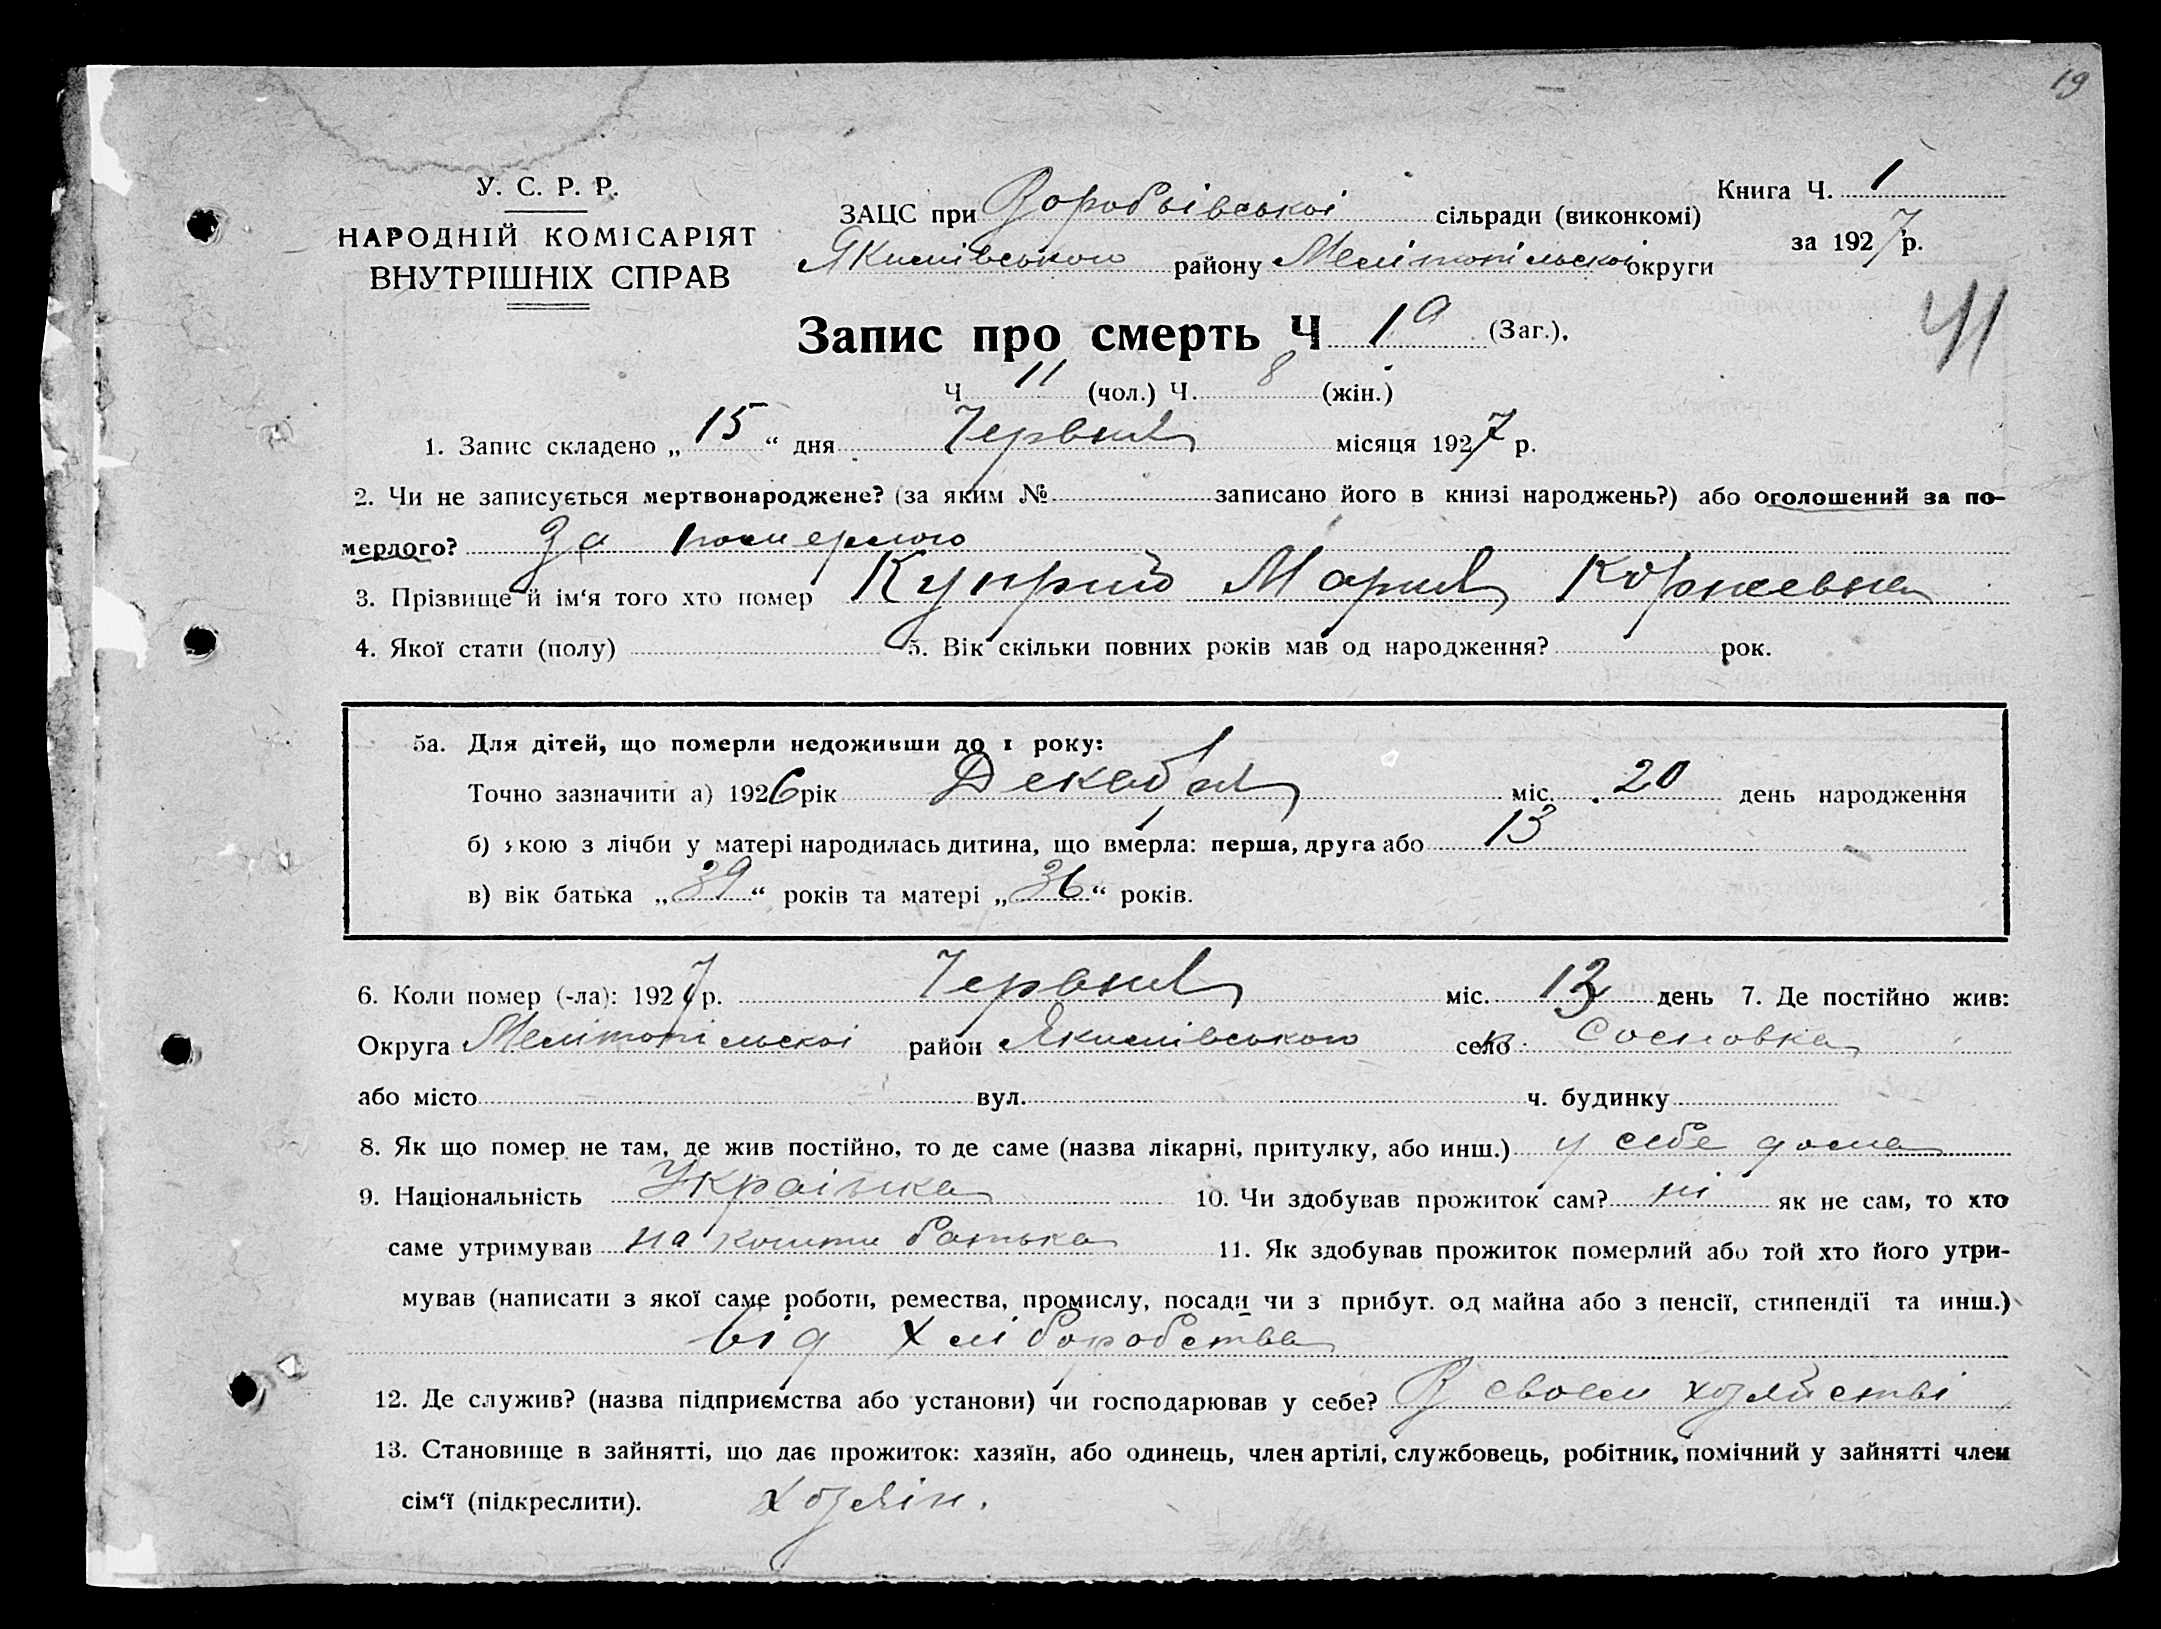 19
У. С. Р. Р.
НАРОДНІЙ КОМІСАРІЯТ
ВНУТРІШНІХ СПРАВ
ЗАЦС при Воробьівськоі сільради (виконкомі)
Якимівського району Мелітопільскоі округи
Книга Ч. 1
за 1927 р.
41
Запис про смерть Ч 19 (Заг.).
Ч 11 (чол.) Ч. 8 (жін.)
1. Запис складено „ 15 “ дня Червня місяця 1927 р.
2. Чи не записується мертвонароджене? (за яким № записано його в книзі народжень?) або оголошений за по-
мерлого? За померлого
3. Прізвище й ім‘я того хто помер Куприй Мария Корнеевна
4. Якої стати (полу) 5. Вік скільки повних років мав од народження? рок.
5а. Для дітей, що померли недоживши до 1 року:
Точно зазначити а) 1926 рік Декабря міс. 20 день народження
б) якою з лічби у матері народилась дитина, що вмерла: перша, друга або 13
в) вік батька „ 39 “ років та матері „ 36 “ років.
6. Коли помер (-ла): 1927 р. Червня міс. 13 день 7. Де постійно жив:
Округа Мелітопільскоі район Якимівського село Сосновка
або місто вул. ч. будинку
8. Як що помер не там, де жив постійно, то де саме (назва лікарні, притулку, або инш.) у себе дома
9. Національність Украінка 10. Чи здобував прожиток сам? ні як не сам, то хто
саме утримував на кошти батька 11. Як здобував прожиток померлий або той хто його утри-
мував (написати з якої саме роботи, ремества, промислу, посади чи з прибут. од майна або з пенсії, стипендії та инш.)
від хліборобства
12. Де служив? (назва підприємства або установи) чи господарював у себе? В своем хозяйстві
13. Становище в зайнятті, що дає прожиток: хазяїн, або одинець, член артілі, службовець, робітник, помічний у зайнятті член
сім‘ї (підкреслити). Хозяін.